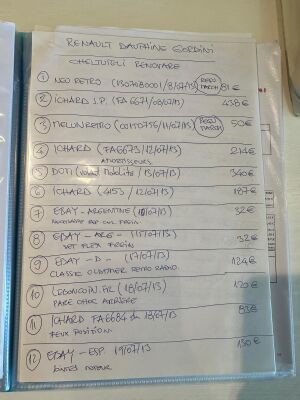 RENAULT DAUPHINE GORDINI
CHELTUIELI RENOVARE
① NEO RETRO (1307080001/8/07/13) 81€
② ICHARD J.P. (FA 6671/09/07/13) 438€
③ MELUN RETRO (00130756/11/07/13) 50€
④ ICHARD (FA6673/12/07/13) 214€
AMORTISSEURS
⑤ DOTI (volant /13/07/13) 340€
⑥ ICHARD (4153/12/07/13) 187€
⑦ EBAY - ARGENTINE 32€
FREIN
⑧ EBAY - ARG - 32€
SET FLEX FREIN
⑨ EBAY - D - (17/07/13) 124€
CLASSIC OLDTIMER RETRO RADIO
⑩ LEBONCOIN.FR (18/07/13) 120€
PARE CHOC ARRIÈRE
⑪ ICHARD FA6684 du 18/07/13 83€
FEUX POSITION
⑫ EBAY - ESP 19/07/13 130€